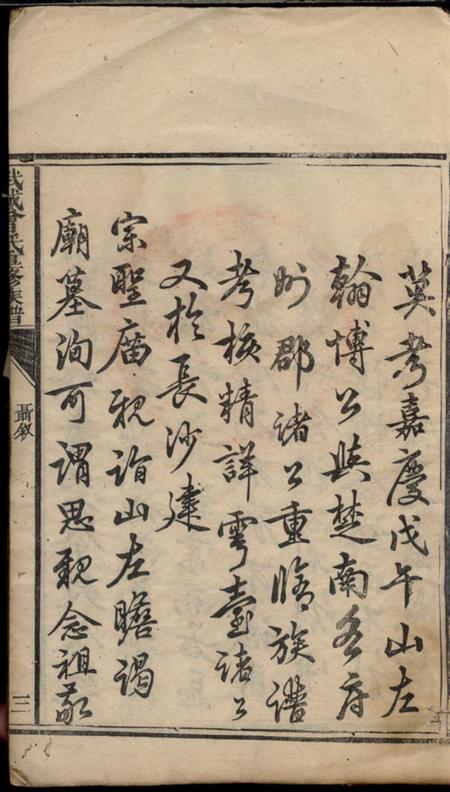 莫考嘉慶戊午山左
翰博公與楚南各府
州郡諸公重脩族譜
考核精詳雩臺諸公
又於長沙建
宗聖廟親詣山左瞻謁
廟墓洵可謂思親念祖敬
武城曾氏重修族譜
聶敘
三